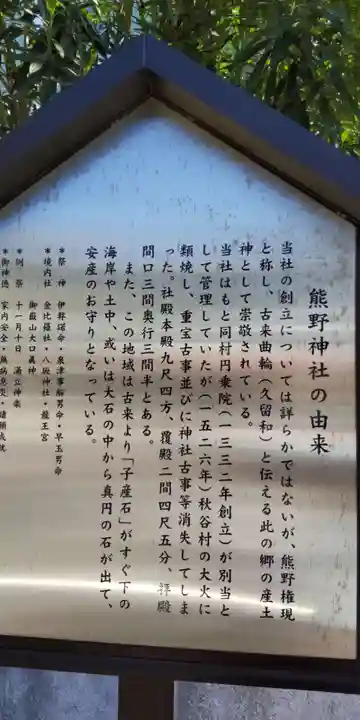 熊野神社の由来
当社の創立については詳らかではないが、熊野権現
と称し、古来曲輪（久留和）と伝える此の郷の産土
神として崇敬されている。
当社はもと同村円乗院（一三三二年創立）が別当と
して管理していたが（一五二六年）秋谷村の大火に
類焼し、重宝古事並びに神社古事等消失してしま
った。社殿本殿九尺四方、覆殿二間四尺五分、拝殿
間口三間奥行三間半とある。
また、この地域は古来より「子産石」がすぐ下の
海岸や土中、或いは大石の中から真円の石が出て、
安産のお守りとなっている。
＊祭神 伊弉諾命・泉津事解男命・早玉男命
＊境内社 金比羅社・八坂神社・龍王宮
御嶽山大口真神
＊例祭 十一月十日 湯立神楽
＊御神徳 家内安全・無病息災・諸願成就